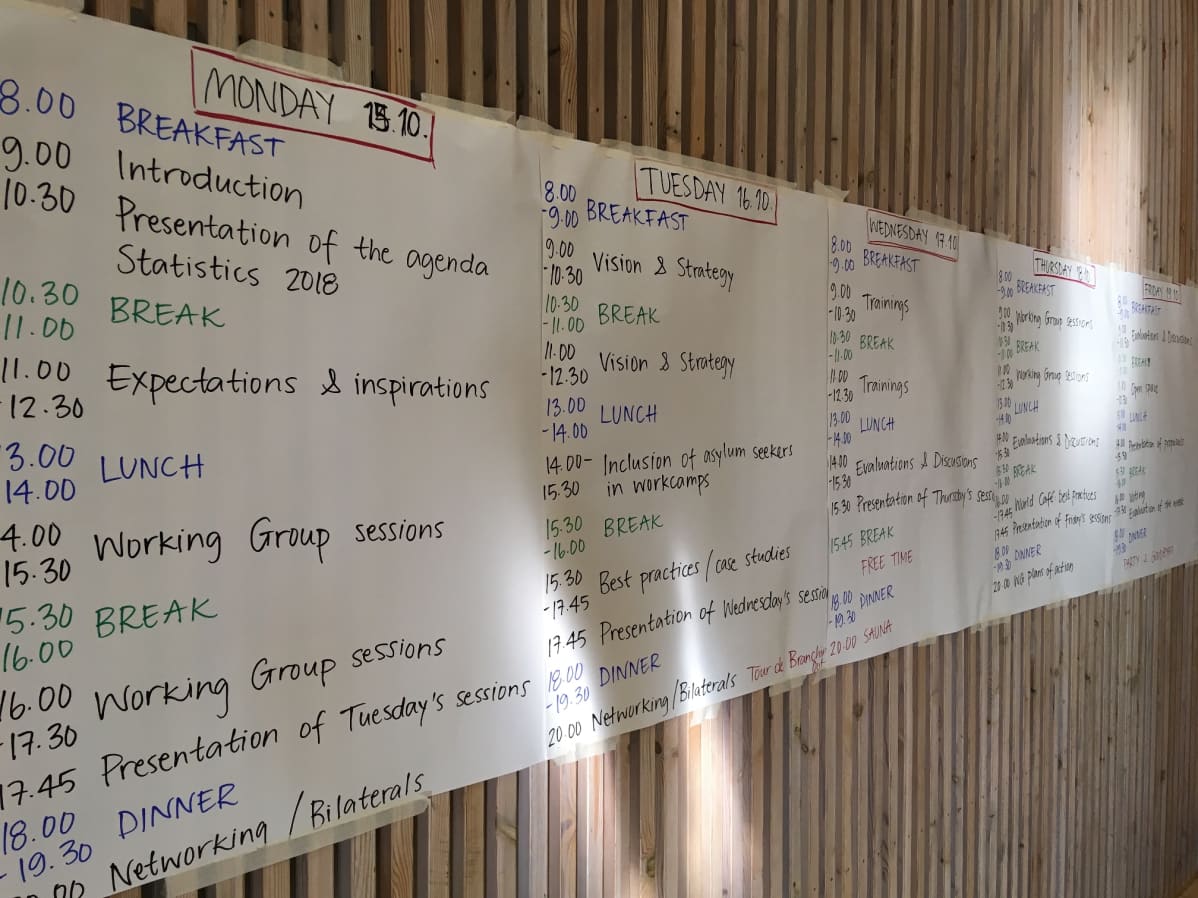 MONDAY 15.10.
8.00 BREAKFAST
9.00 Introduction
10.30 Presentation of the agenda
Statistics 2018
10.30 BREAK
11.00
11.00 Expectations & inspirations
-12.30
3.00 LUNCH
14.00
4.00 Working Group sessions
15.30
5.30 BREAK
16.00
16.00 Working Group sessions
-17.30
17.45 Presentation of Tuesday's sessions
18.00 DINNER
-19.30
Networking / Bilaterals
TUESDAY 16.10.
8.00 BREAKFAST
-9.00
9.00 Vision & Strategy
-10.30
10.30 BREAK
-11.00
11.00 Vision & Strategy
-12.30
13.00 LUNCH
-14.00
14.00- Inclusion of asylum seekers
15.30 in workcamps
15.30 BREAK
-16.00
15.30 Best practices / case studies
-17.45
17.45 Presentation of Wednesday's session
18.00 DINNER
-19.30
20.00 Networking / Bilaterals Tour de
WEDNESDAY 17.10
8.00 BREAKFAST
-9.00
9.00 Trainings
-10.30
10.30 BREAK
-11.00
11.00 Trainings
-12.30
13.00 LUNCH
-14.00
14.00 Evaluations & Discussions
-15.30
15.30 Presentation of Thursday's sess
15.45 BREAK
FREE TIME
18.00 DINNER
-19.30
20.00 SAUNA
THURSDAY 18.10.
8.00 BREAKFAST
-9.00
9.00 Working Group sessions
-10.30
10.30 BREAK
-11.00
11.00 Working Group sessions
-12.30
13.00 LUNCH
-14.00
14.00 Evaluations & Discussions
-15.30
15.30 BREAK
-16.00
16.00 World Café best practices
-17.45
17.45 Presentation of Friday's sessions
18.00 DINNER
-19.30
20.00 WG plans of action
FRIDAY 19.10
BREAKFAST
Evaluations & Discussions
BREAK
Open space
LUNCH
Presentation of proposals
BREAK
Voting
Evaluation of the week
DINNER
PARTY &